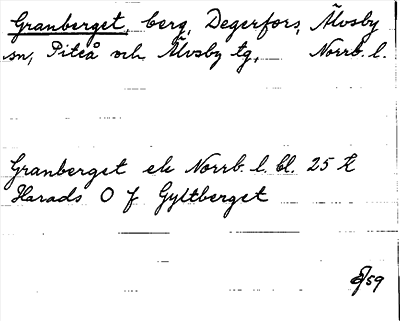 Granberget, berg, Degerfors, Älvsby
sn, Piteå och Älvsby tg, Norrb. l.
Granberget ek Norrb. l. bl. 25 k
Harads O f Gyltberget
59